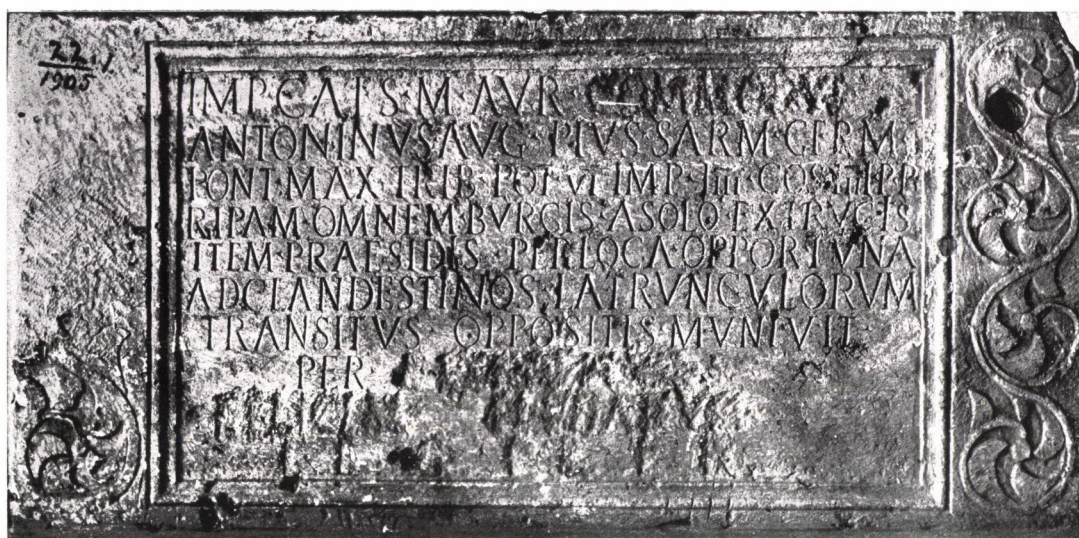 22.1
1905
IMP·CAES·M·AVR COMMODVS
ANTONINVS·AVG·PIVS·SARM·GERM·
PONT·MAX·TRIB·POT·VI·IMP·IIII·COS·IIII·P·P
RIPAM·OMNEM·BVRGIS·A SOLO EXTRVCTIS
ITEM·PRAESIDIS·PER LOCA·OPPORTVNA
AD CLANDESTINOS·LATRVNCVLORVM
TRANSITVS·OPPOSITIS·MVNIVIT
PER